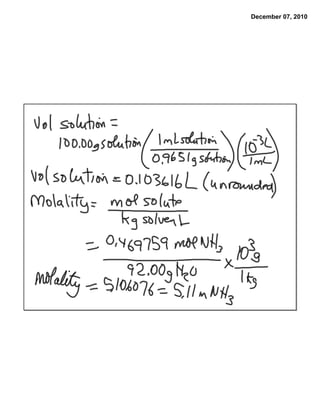 December 07, 2010
Vol solution =
100.00g solution (1mL solution / 0.9651g solution) (10⁻³L / 1mL)
Vol solution = 0.103616 L (unrounded)
Molality = mol solute / kg solvent
= 0.469759 mol NH₃ / 92.00g H₂O × 10³g / 1kg
molality = 5.106076 = 5.11 m NH₃